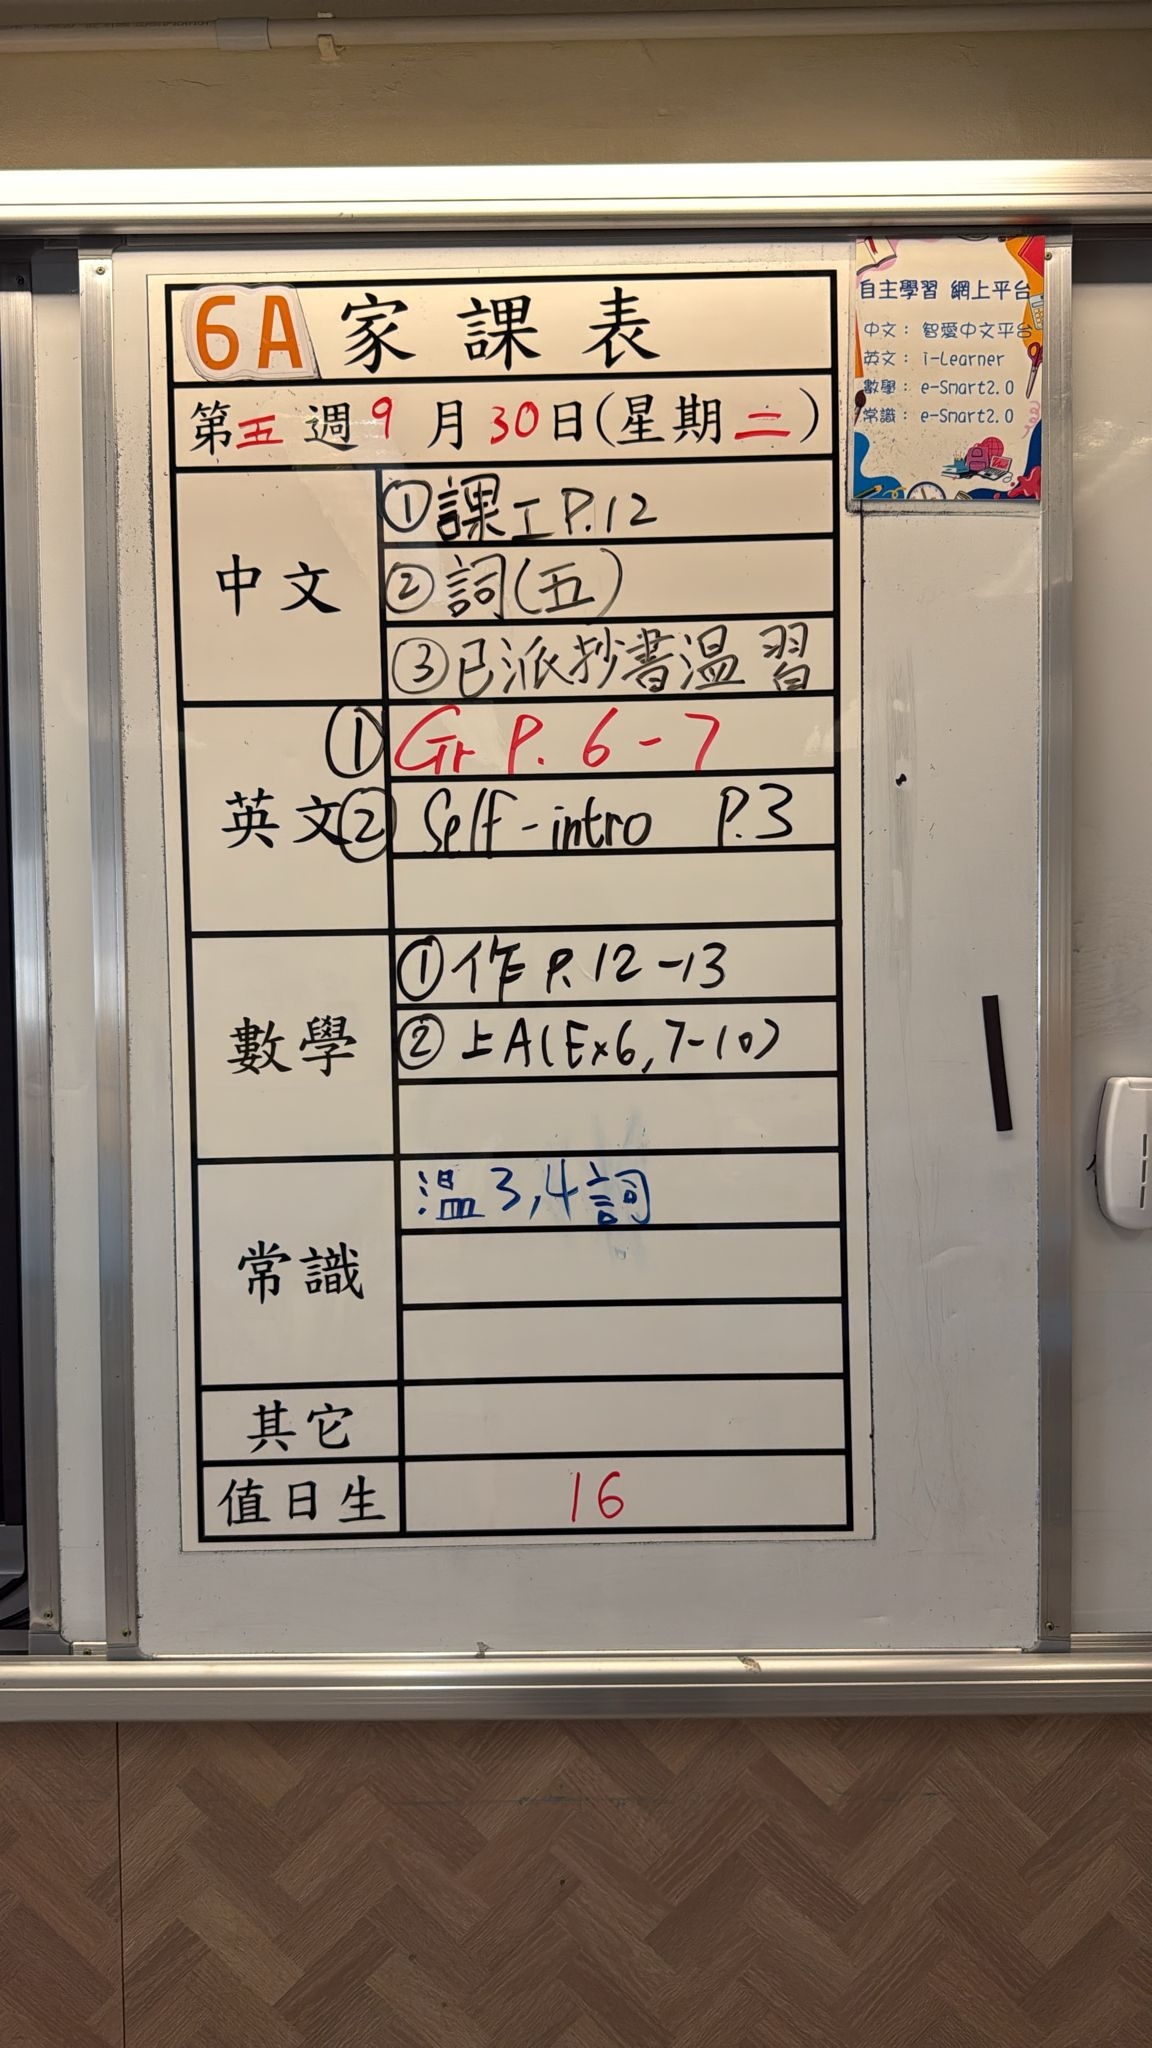 6A 家課表
第五週9月30日(星期二)
中文
①課工P.12
②詞(五)
③已派抄書溫習
英文
①Gr P. 6-7
②Self-intro P.3
數學
①作P.12-13
②上A(Ex6,7-10)
常識
溫3,4詞
其它
值日生
16
自主學習 網上平台
中文: 智愛中文平台
英文: i-Learner
數學: e-Smart2.0
常識: e-Smart2.0